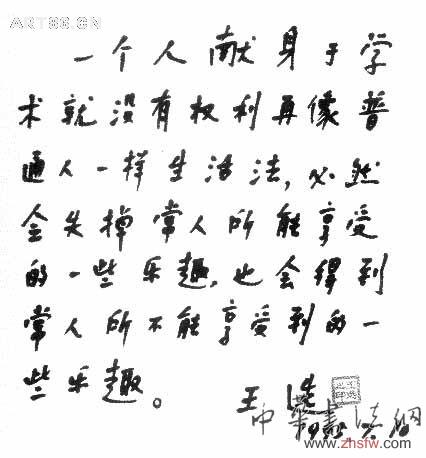 ART86.CN
一个人献身于学
术就没有权利再像普
通人一样生活法，必然
会失掉常人所能享受
的一些乐趣，也会得到
常人所不能享受到的一
些乐趣。
王选
中华书法网
www.zhsfw.com